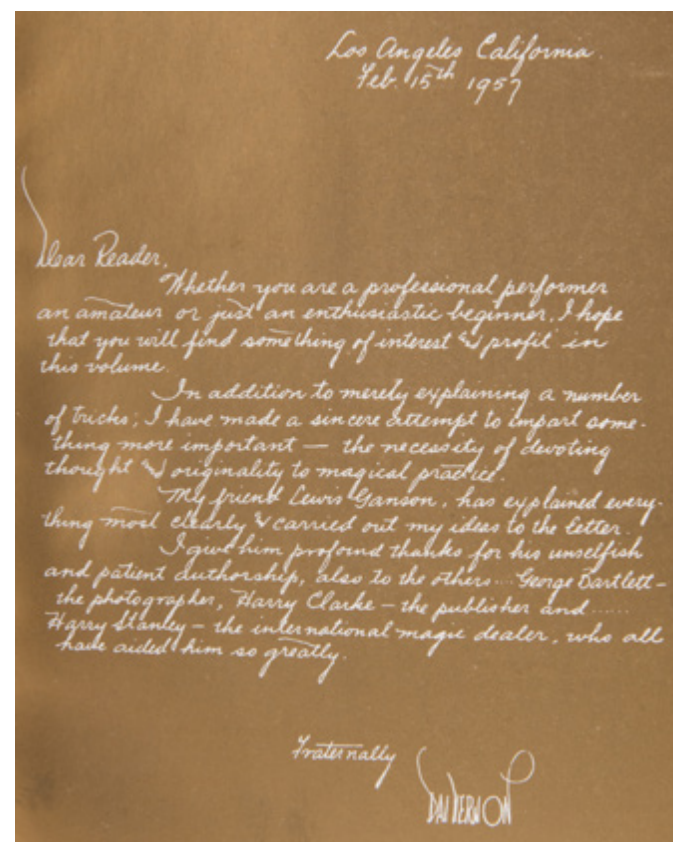 Los Angeles California.
Feb. 15th 1957
Dear Reader,
Whether you are a professional performer
an amateur or just an enthusiastic beginner, I hope
that you will find something of interest & profit in
this volume.
In addition to merely explaining a number
of tricks; I have made a sincere attempt to impart some-
thing more important — the necessity of devoting
thought & originality to magical practice.
My friend Lewis Ganson, has explained every-
thing most clearly & carried out my ideas to the letter.
I give him profound thanks for his unselfish
and patient authorship, also to the others... George Bartlett —
the photographer, Harry Clarke — the publisher and ......
Harry Stanley — the international magic dealer, who all
have aided him so greatly.
Fraternally
DAI VERNON